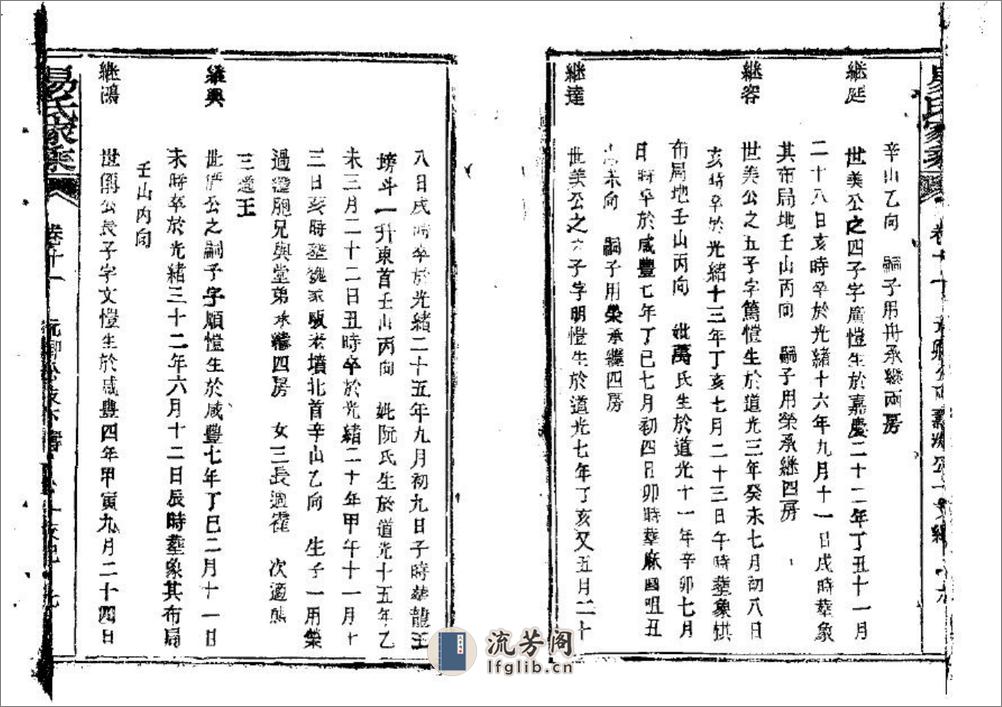 易氏家乘
卷十一
辛山乙向　嗣子用冉承繼兩房
繼庭
世美公之四子字廣愷生於嘉慶二十二年丁丑十一月
二十八日亥時卒於光緒十六年九月十一日戌時塟象
其布局地壬山丙向　嗣子用榮承繼四房
繼容
世美公之五子字篤愷生於道光三年癸未七月初八日
亥時卒於光緒十三年丁亥七月二十三日午時塟象棋
布局地壬山丙向　妣萬氏生於道光十一年辛卯七月
日時卒於咸豐七年丁巳七月初四日卯時塟麻園咀丑
未向　嗣子用榮承繼四房
繼達
世美公之六子字明愷生於道光七年丁亥又五月二十
八日戌時卒於光緒二十五年九月初九日子時塟龍王
塝斗一升東首壬山丙向　妣阮氏生於道光十五年乙
未三月二十二日丑時卒於光緒二十年甲午十一月十
三日亥時塟魏家畈老墳北首辛山乙向　生子一用榮
過繼胞兄與堂弟承繼四房　女三長適霍　次適熊
三適王
繼興
世儒公之嗣子字順愷生於咸豐七年丁巳二月十一日
未時卒於光緒三十二年六月十二日辰時塟象其布局
壬山丙向
繼鴻
世儒公長子字文愷生於咸豐四年甲寅九月二十四日
易氏家乘
卷十一
九
流芳阁
lfglib.cn